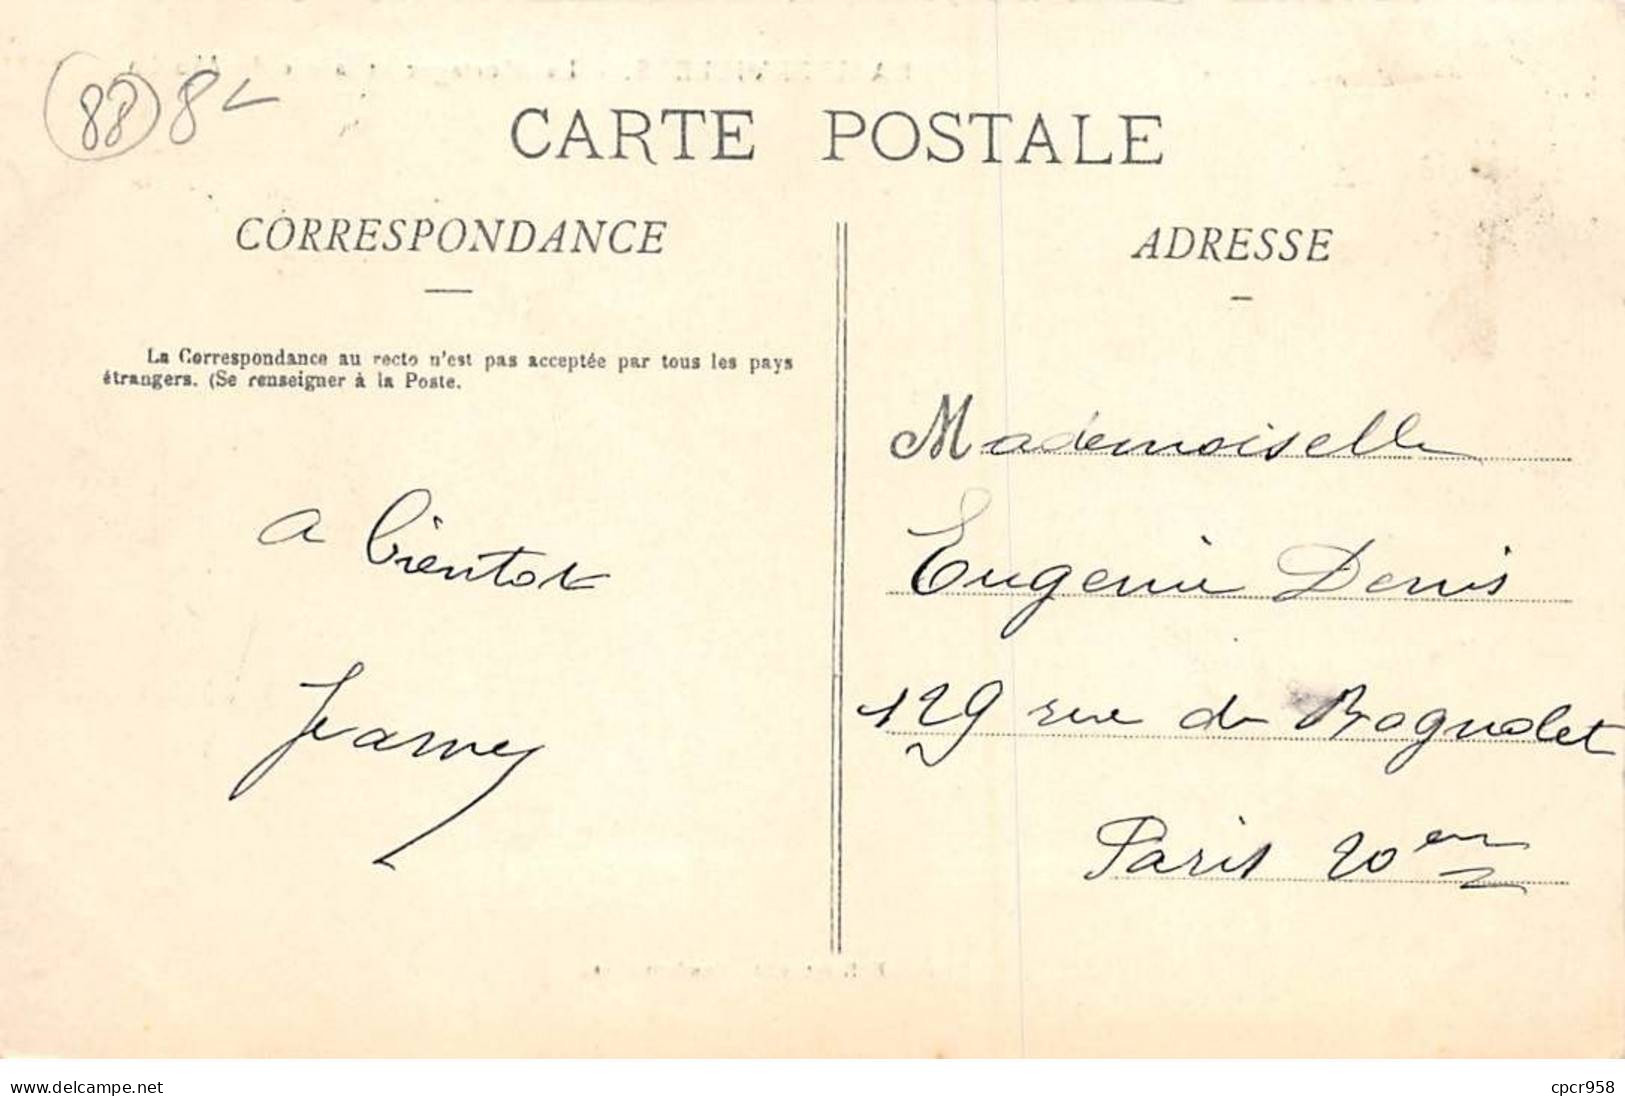 88 8
CARTE POSTALE
CORRESPONDANCE
La Correspondance au recto n'est pas acceptée par tous les pays
étrangers. (Se renseigner à la Poste.
a bientot
ADRESSE
Mademoiselle
Eugenie Denis
129 rue de Bagnolet
Paris 20em
www.delcampe.net
cpcr958